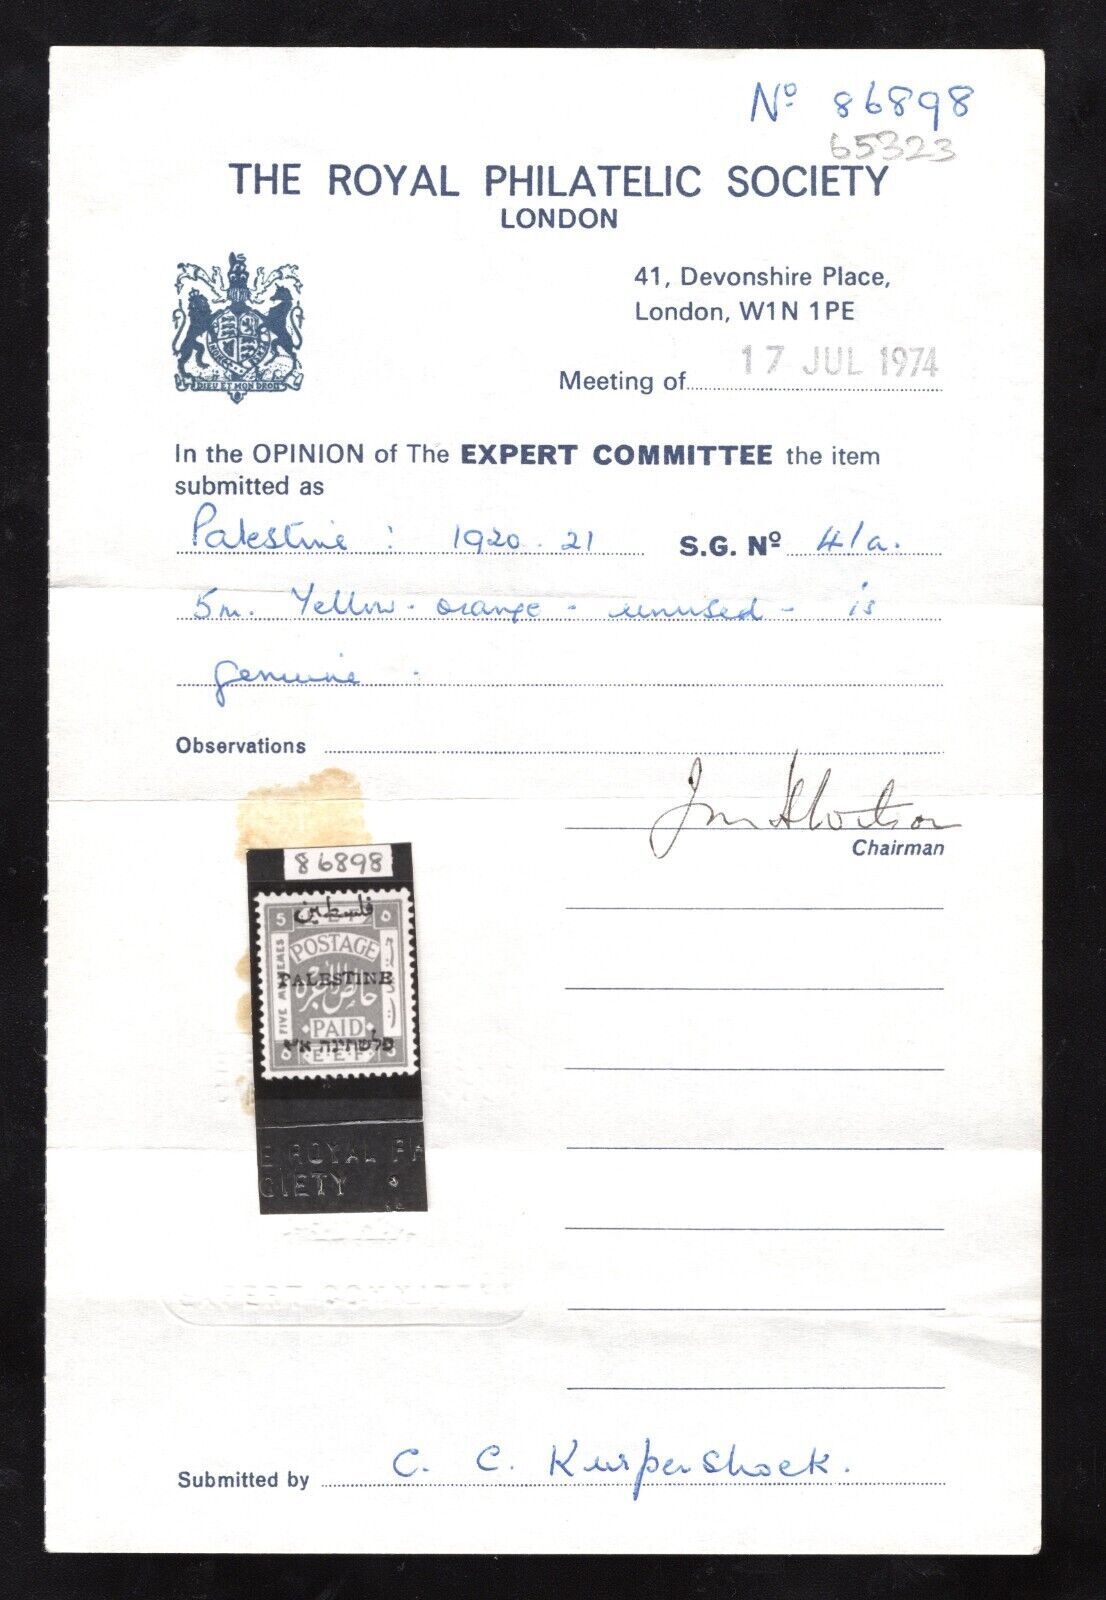 Nº 86898
65323
THE ROYAL PHILATELIC SOCIETY
LONDON
41, Devonshire Place,
London, W1N 1PE
DIEU ET MON DROIT
Meeting of 17 JUL 1974
In the OPINION of The EXPERT COMMITTEE the item
submitted as
Palestine : 1920-21 S.G. Nº 41a.
5m. Yellow-orange - unused - is
genuine.
Observations
Chairman
86898
فلسطين
5 ٥
POSTAGE
FIVE MILLIEMES
PALESTINE
PAID
פלשתינה א״י
E.E.F.
E ROYAL PH
CIETY
EXPERT COMMITTEE
Submitted by C. C. Kuipershoek.